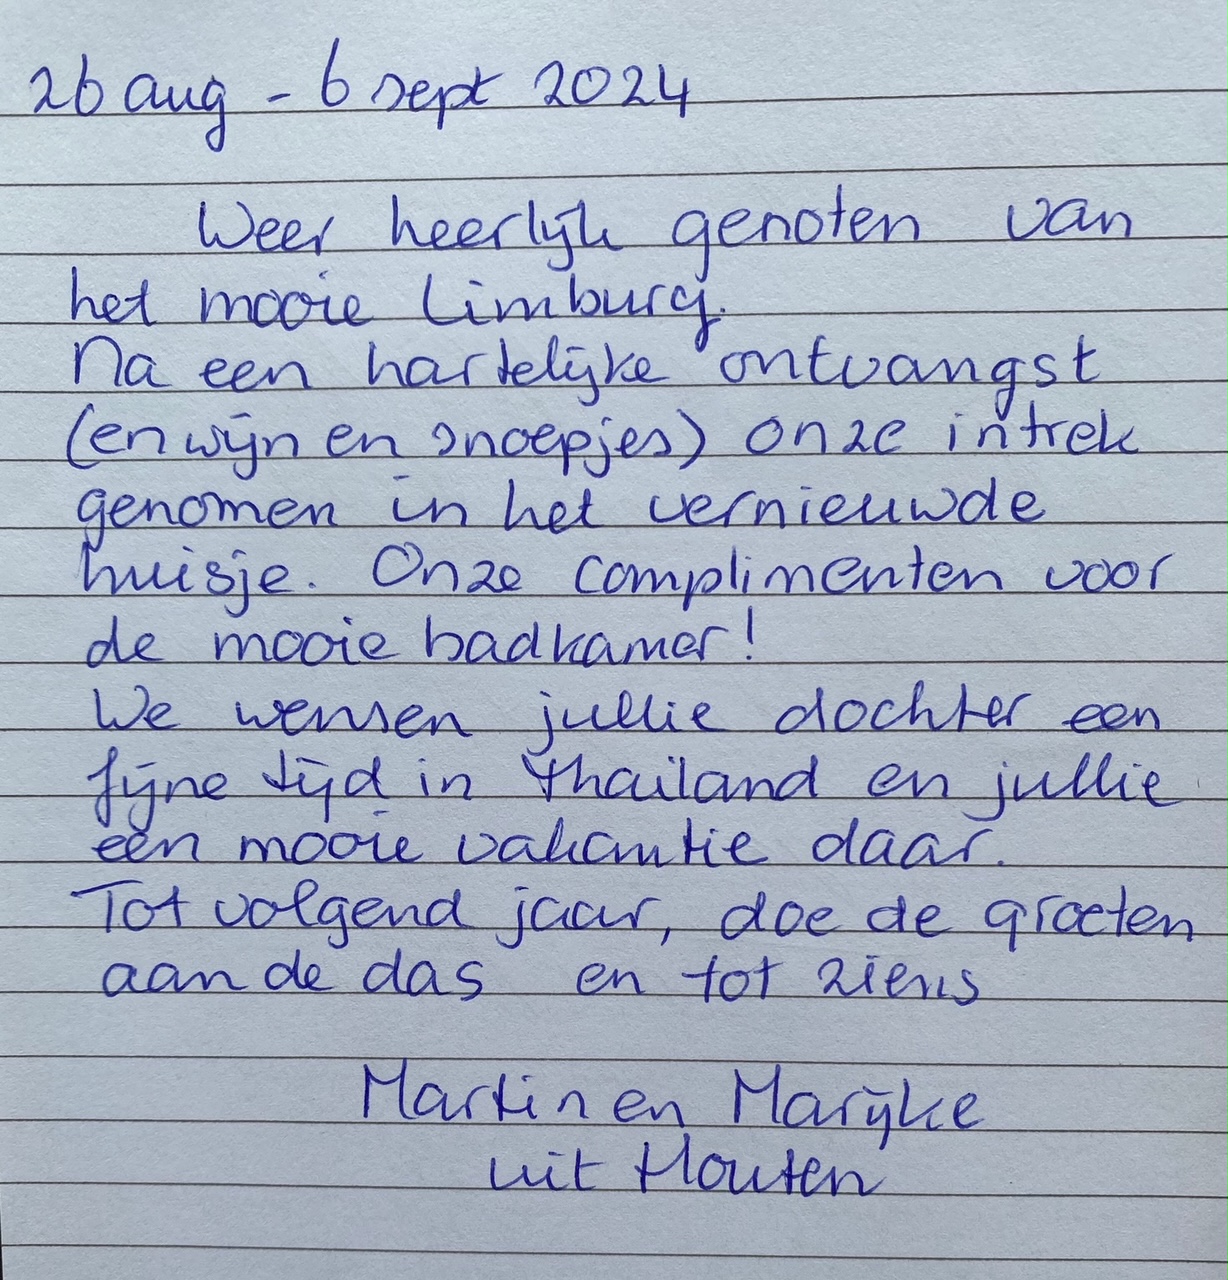 26 aug - 6 sept 2024
Weer heerlijk genoten van
het mooie Limburg.
Na een hartelijke ontvangst
(en wijn en snoepjes) onze intrek
genomen in het vernieuwde
huisje. Onze complimenten voor
de mooie badkamer!
We wensen jullie dochter een
fijne tijd in Thailand en jullie
een mooie vakantie daar.
Tot volgend jaar, doe de groeten
aan de das en tot ziens
Martin en Marijke
uit Houten